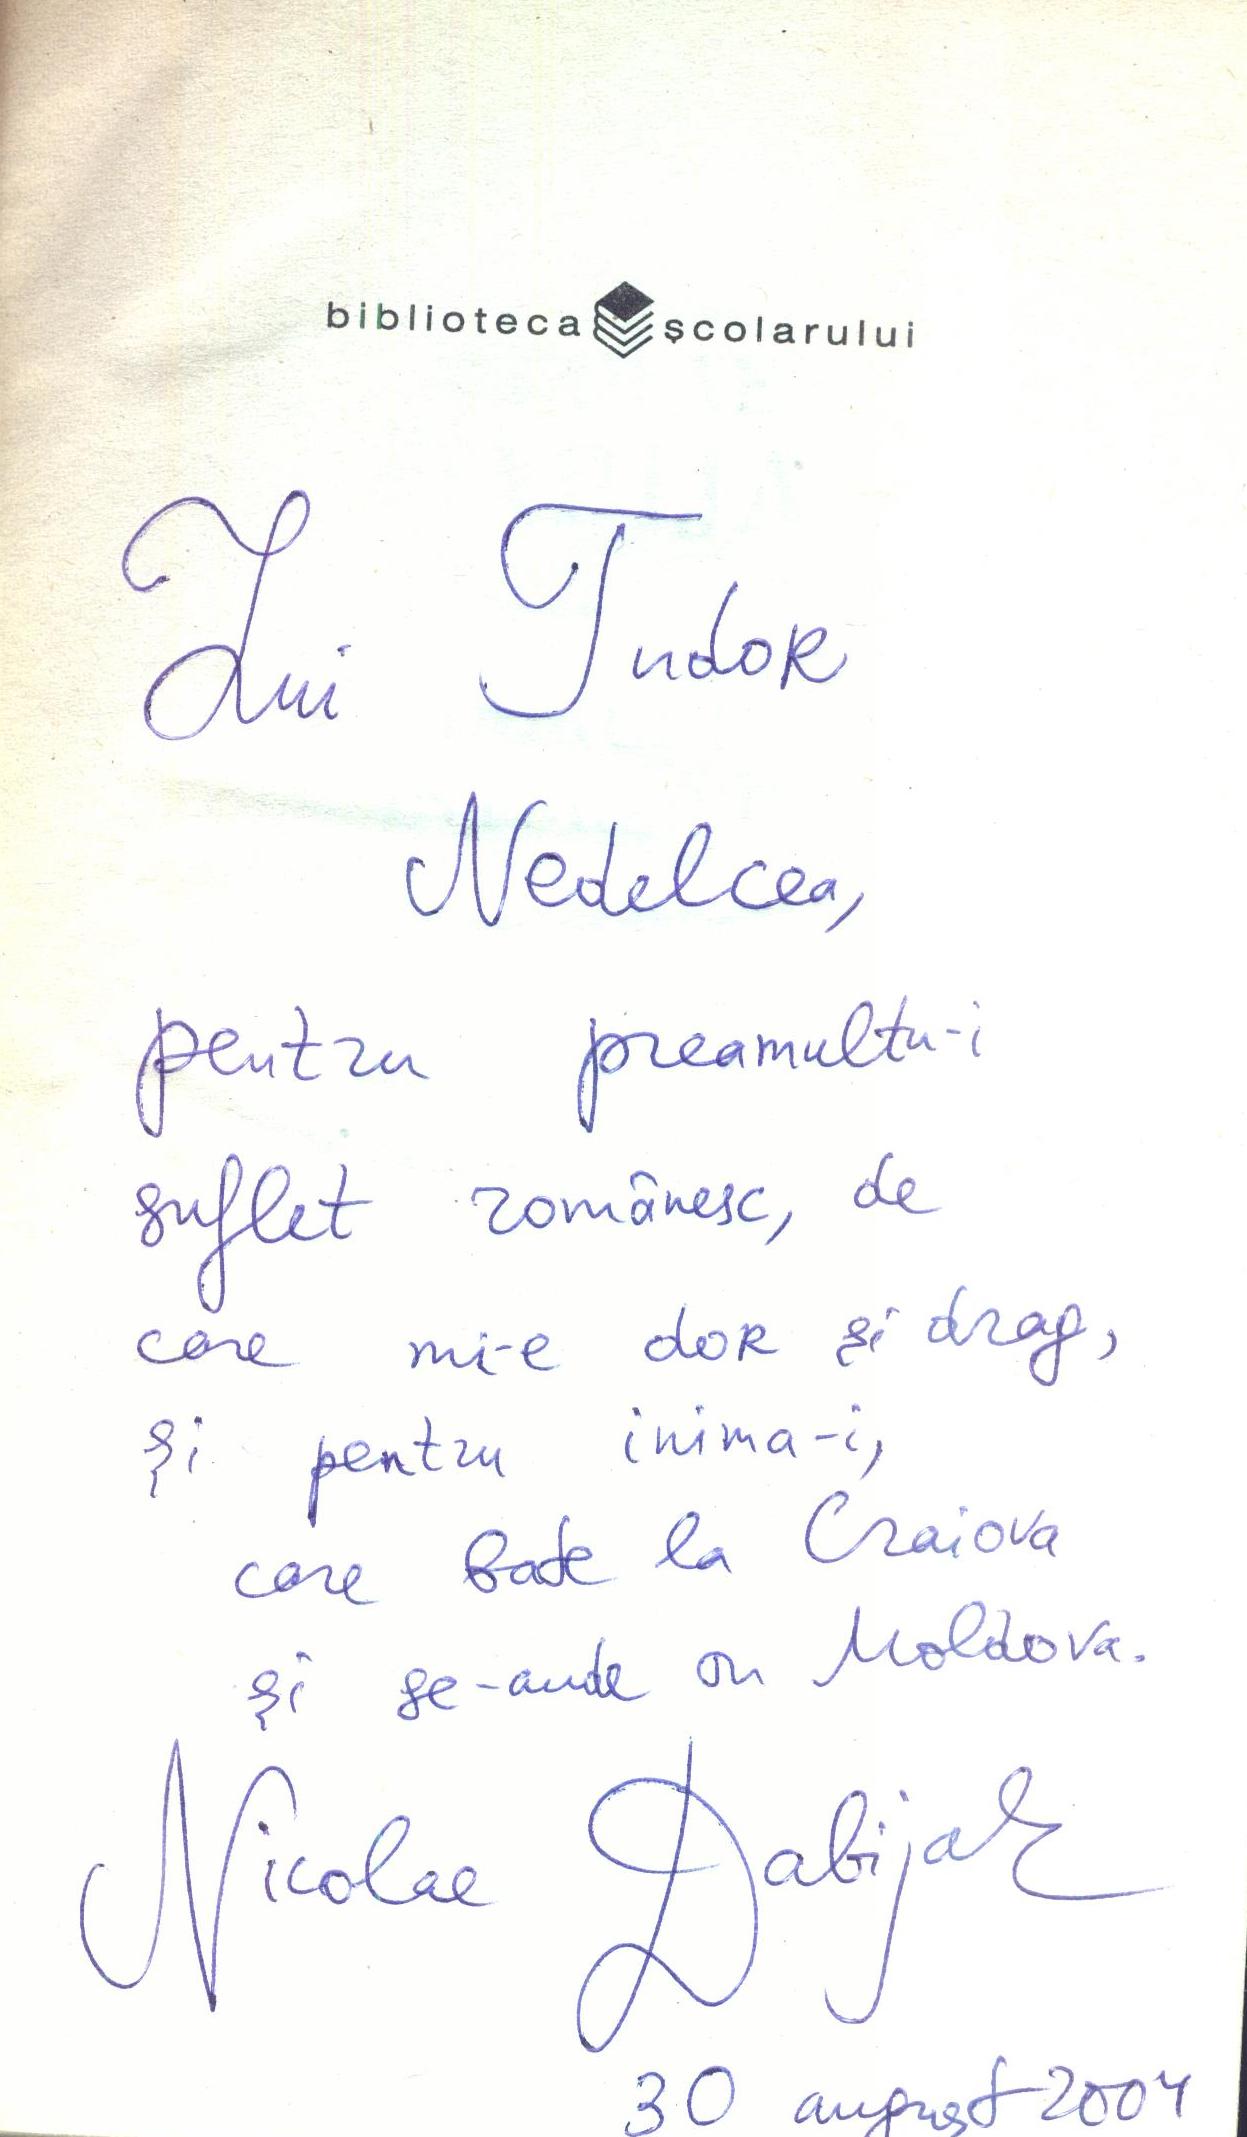 biblioteca școlarului
Lui Tudor
Nedelcea,
pentru preamultu-i
suflet românesc, de
care mi-e dor și drag,
și pentru inima-i,
care bate la Craiova
și se-aude în Moldova.
Nicolae Dabija
30 august 2004